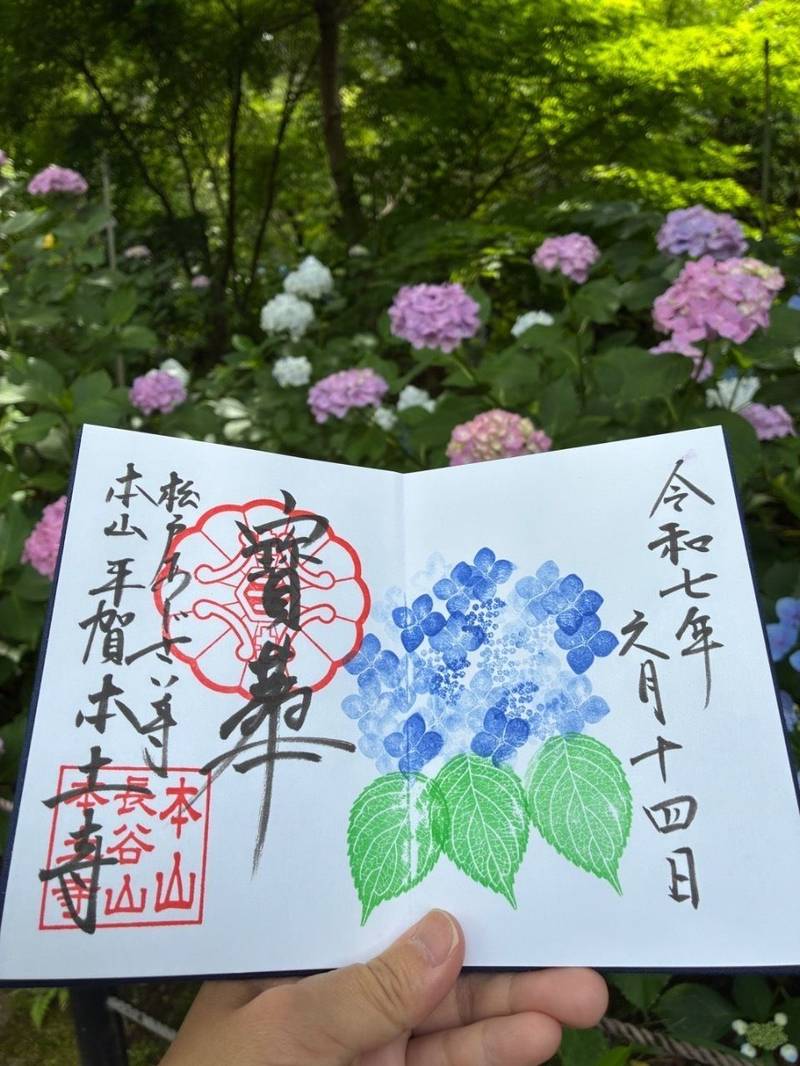 令和七年
六月十四日
寶華
松戸あじさい寺
本山 平賀 本土寺
本山
長谷山
本土寺